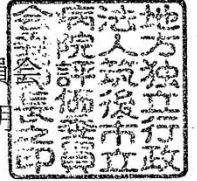 地方独立行政
法人筑後市立
病院評価委員
会委員長之印